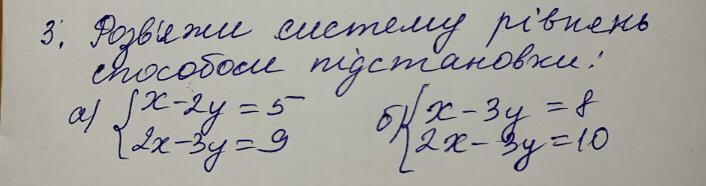 3. Розв'яжи систему рівнень
способом підстановки:
а) { x-2y=5 б) { x-3y=8
2x-3y=9 2x-3y=10